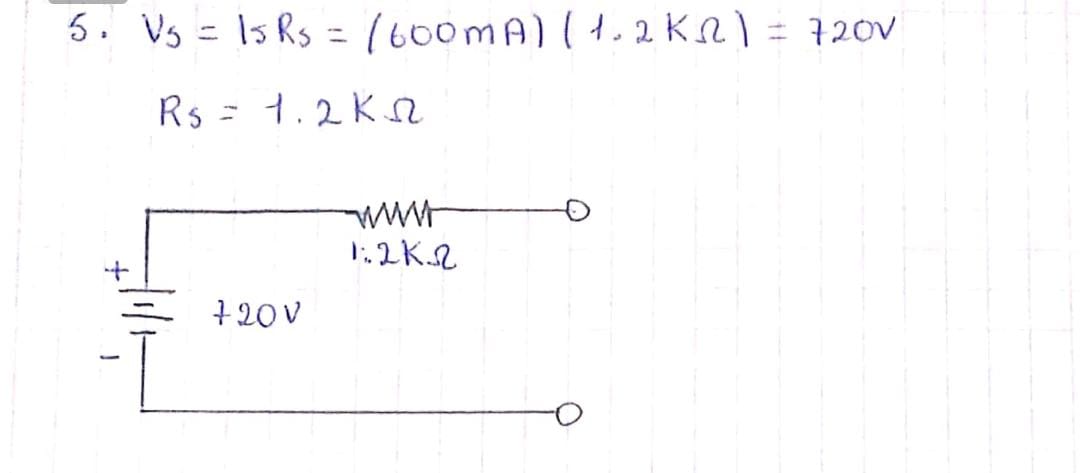 5. Vs = Is Rs = (600mA) (1.2KΩ) = 720V
Rs = 1.2KΩ
1.2KΩ
+
720V
-